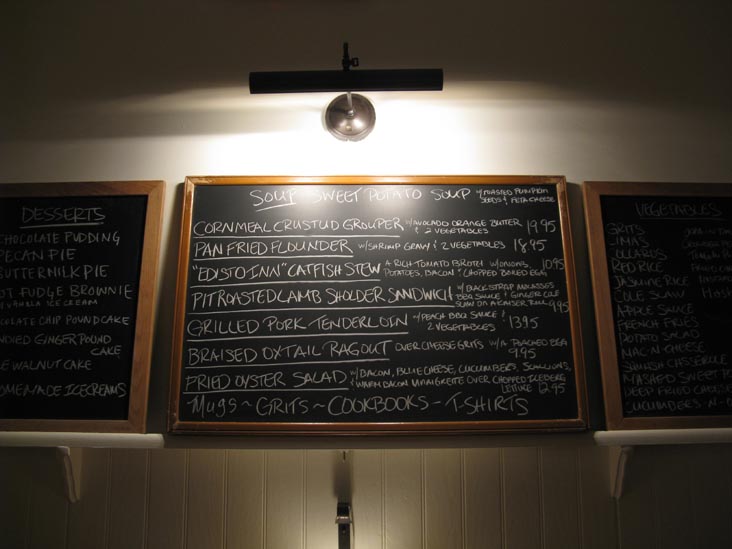 DESSERTS
CHOCOLATE PUDDING
PECAN PIE
BUTTERMILK PIE
HOT FUDGE BROWNIE
W/ VANILLA ICE CREAM
CHOCOLATE CHIP POUND CAKE
GINGER POUND
CAKE
WALNUT CAKE
HOMEMADE ICECREAMS
SOUP SWEET POTATO SOUP W/ ROASTED PUMPKIN
SEEDS & FETA CHEESE
CORNMEAL CRUSTUD GROUPER W/ AVOCADO ORANGE BUTTER 19.95
& 2 VEGETABLES
PAN FRIED FLOUNDER W/ SHRIMP GRAVY & 2 VEGETABLES 18.95
"EDISTO INN" CATFISH STEW A RICH TOMATO BROTH W/ ONIONS, 10.95
POTATOES, BACON & CHOPPED BOILED EGG
PIT ROASTED LAMB SHOLDER SANDWICH W/ BLACKSTRAP MOLASSES
BBQ SAUCE & GINGER COLE
SLAW ON A KAISER ROLL 9.95
GRILLED PORK TENDERLOIN W/ PEACH BBQ SAUCE & 13.95
2 VEGETABLES
BRAISED OXTAIL RAGOUT OVER CHEESE GRITS W/ A POACHED EGG
9.95
FRIED OYSTER SALAD W/ BACON, BLUE CHEESE, CUCUMBERS, SCALLIONS,
& WARM BACON VINAIGRETTE OVER CHOPPED ICEBERG
LETTUCE 12.95
~MUGS ~ GRITS ~ COOKBOOKS ~ T-SHIRTS
VEGETABLES
GRITS
LIMAS
COLLARDS
RED RICE
JASMINE RICE
COLE SLAW
APPLE SAUCE
FRENCH FRIES
POTATO SALAD
MAC-N-CHEESE
SQUASH CASSEROLE
MASHED SWEET
DEEP FRIED
CUCUMBERS -N-